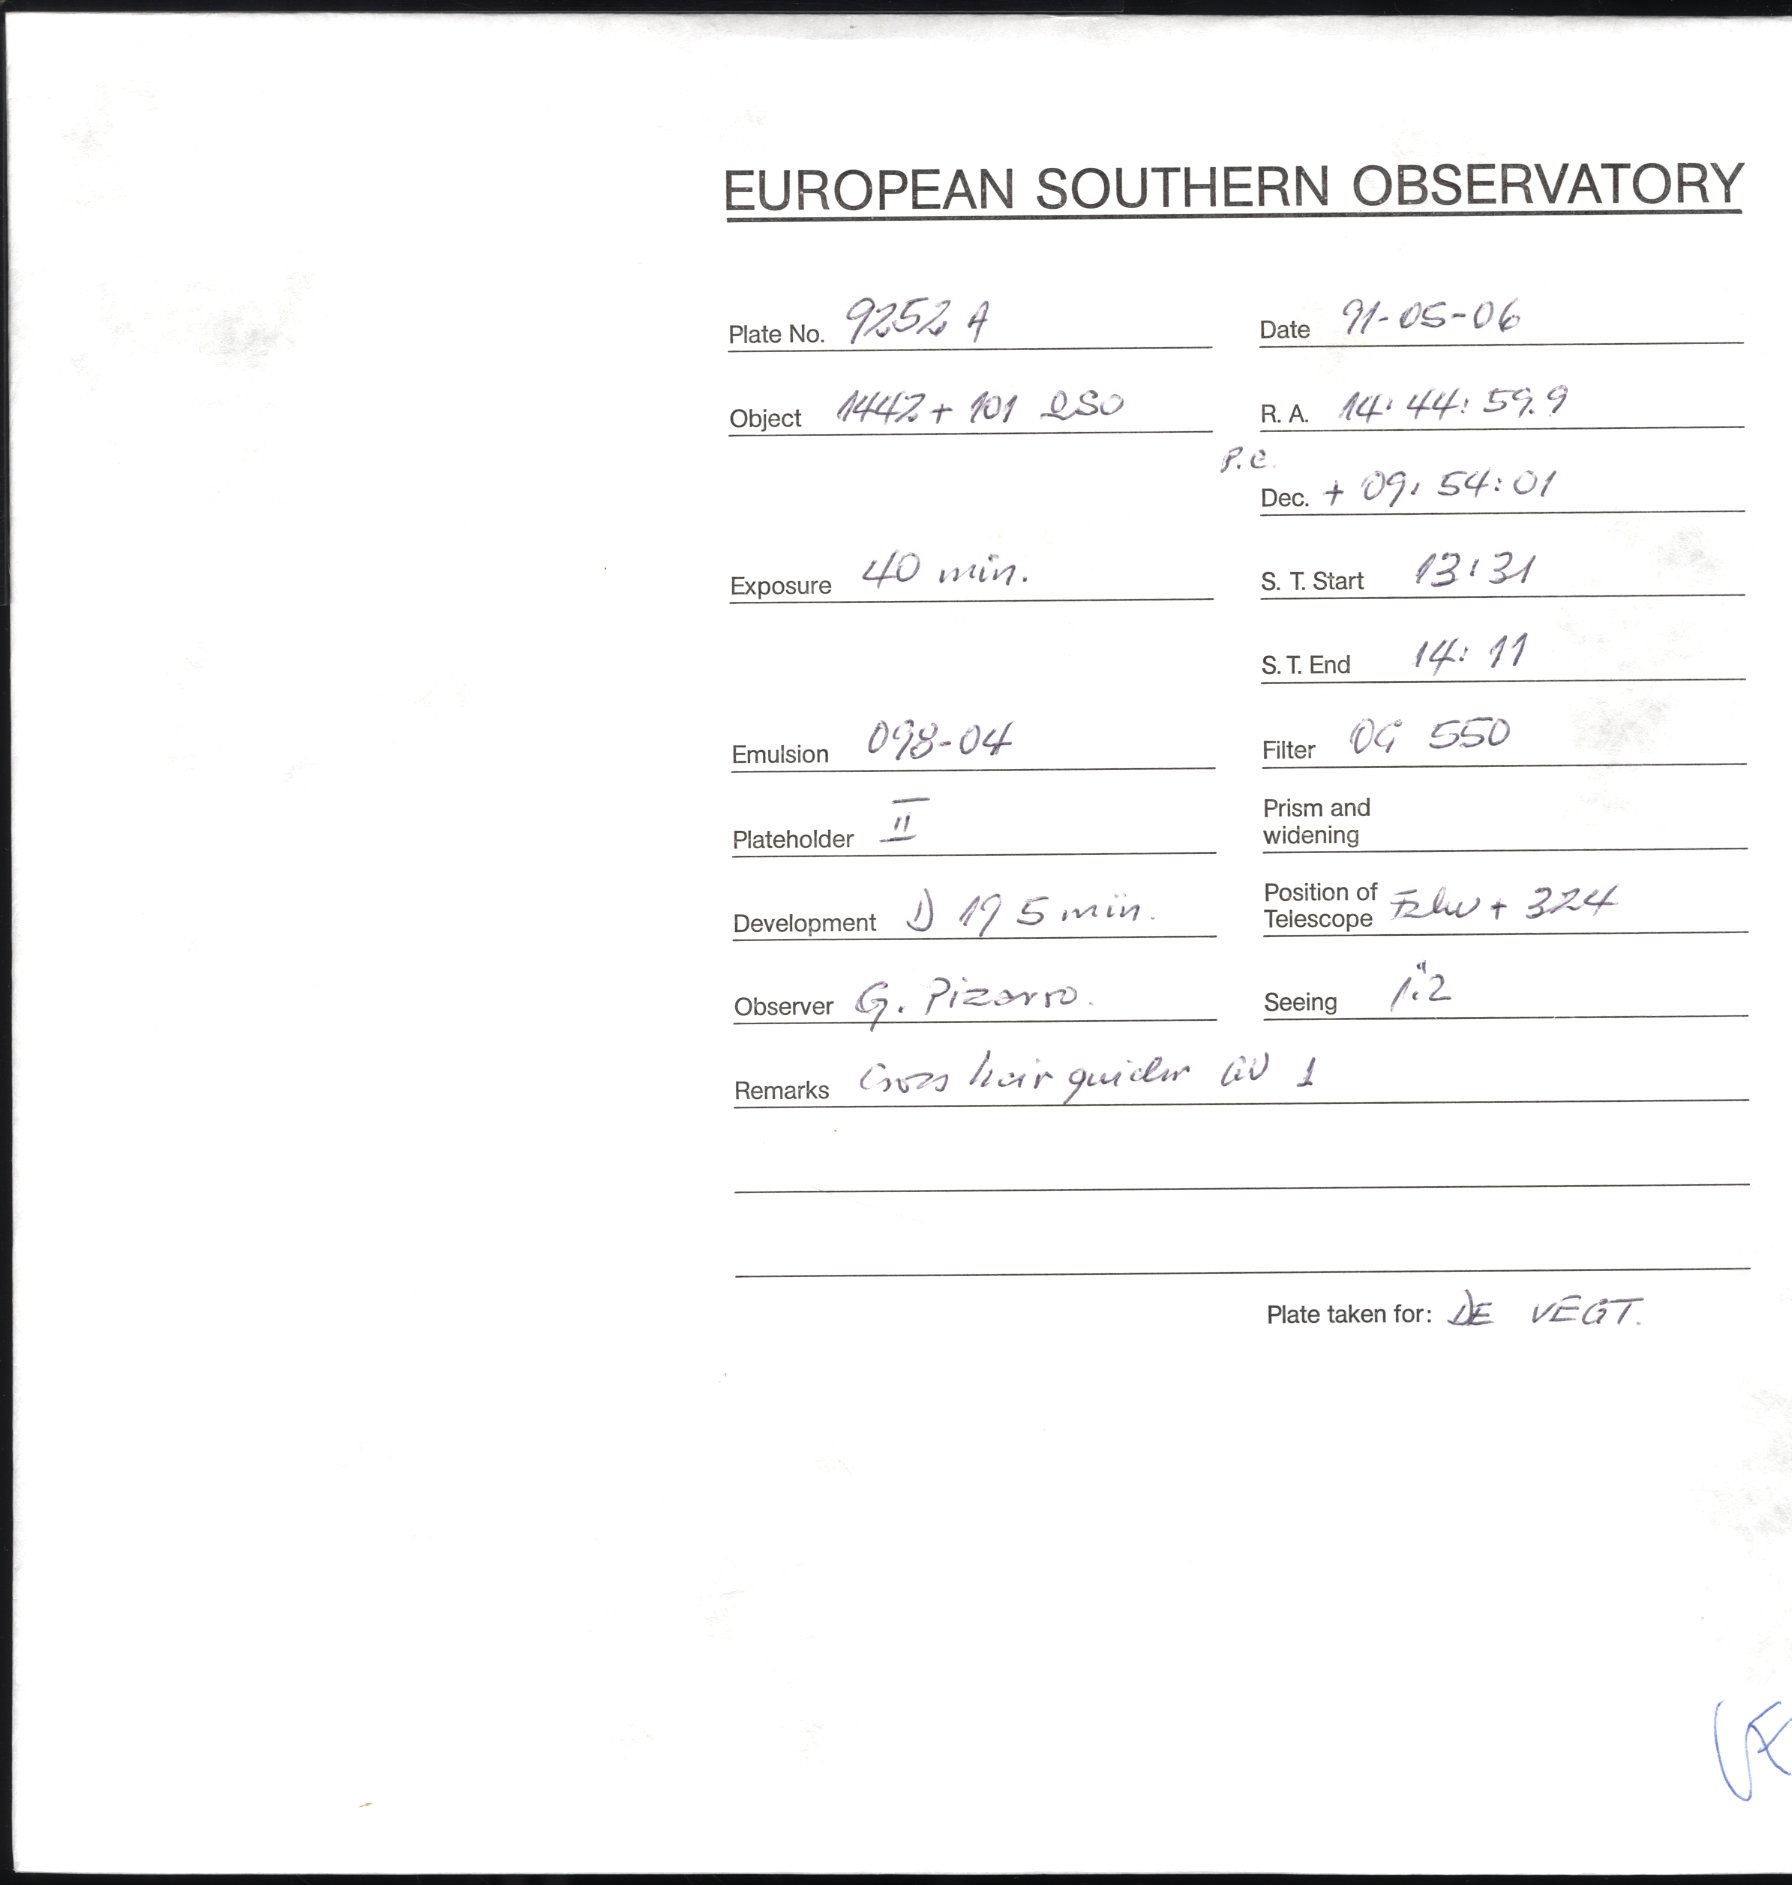 EUROPEAN SOUTHERN OBSERVATORY
Plate No. 9252 A Date 91-05-06
Object 1442+101 QSO R. A. 14:44:59.9
P.C.
Dec. + 09:54:01
Exposure 40 min. S. T. Start 13:31
S. T. End 14:11
Emulsion 098-04 Filter OG 550
Plateholder II Prism and
widening
Development D 19 5 min. Position of
Telescope + 324
Observer G. Pizarro. Seeing 1".2
Remarks Cross hair guider 1
Plate taken for: DE VEGT.